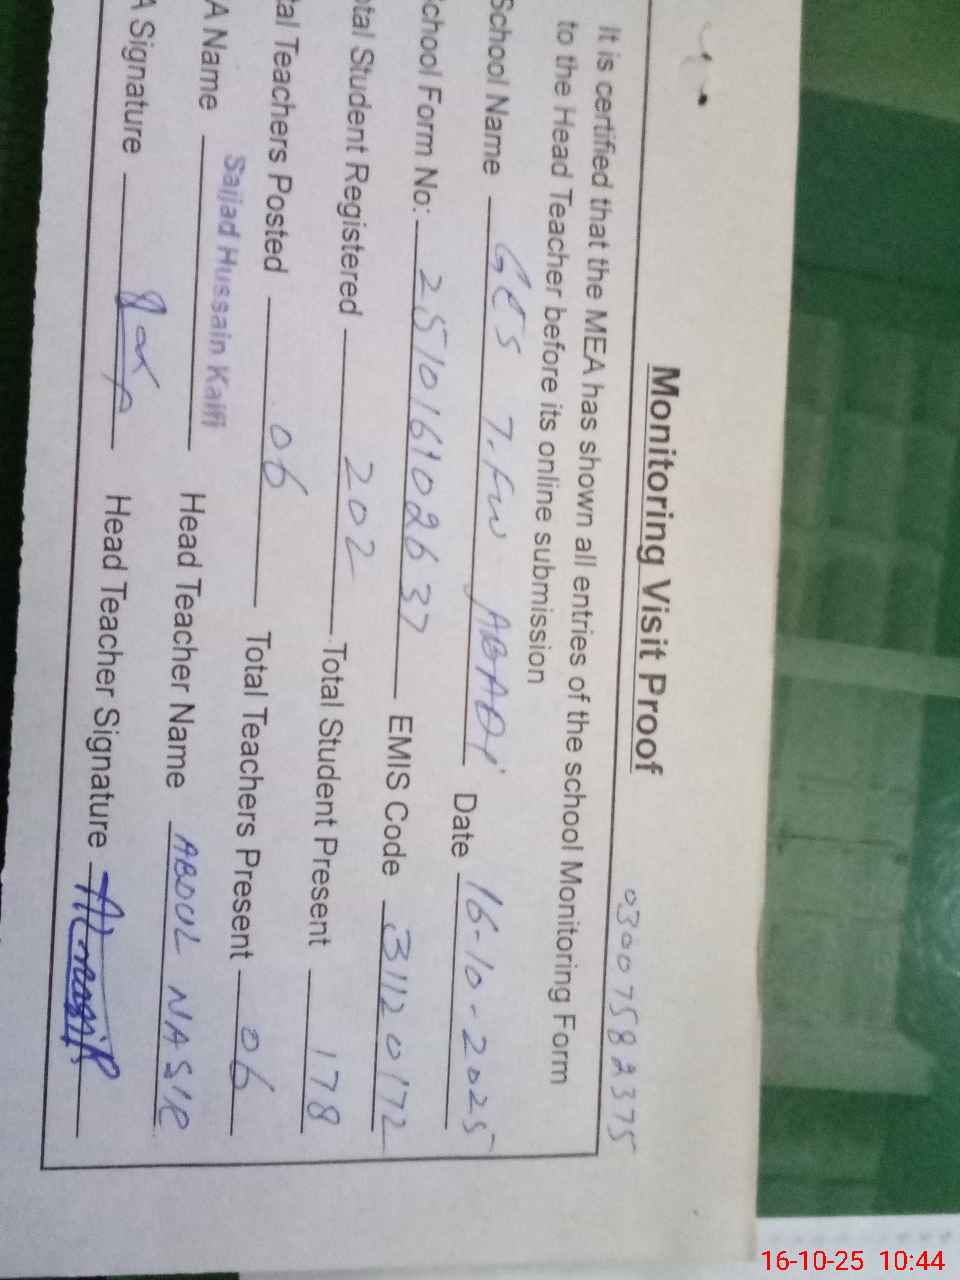 Monitoring Visit Proof
03007582375
It is certified that the MEA has shown all entries of the school Monitoring Form
to the Head Teacher before its online submission
School Name GES 7-FW ABADI Date 16-10-2025
chool Form No: 2510161102637 EMIS Code 31120172
otal Student Registered 202 Total Student Present 178
tal Teachers Posted 06 Total Teachers Present 06
A Name Sajjad Hussain Kaifi Head Teacher Name ABDUL NASIR
A Signature Head Teacher Signature
16-10-25 10:44